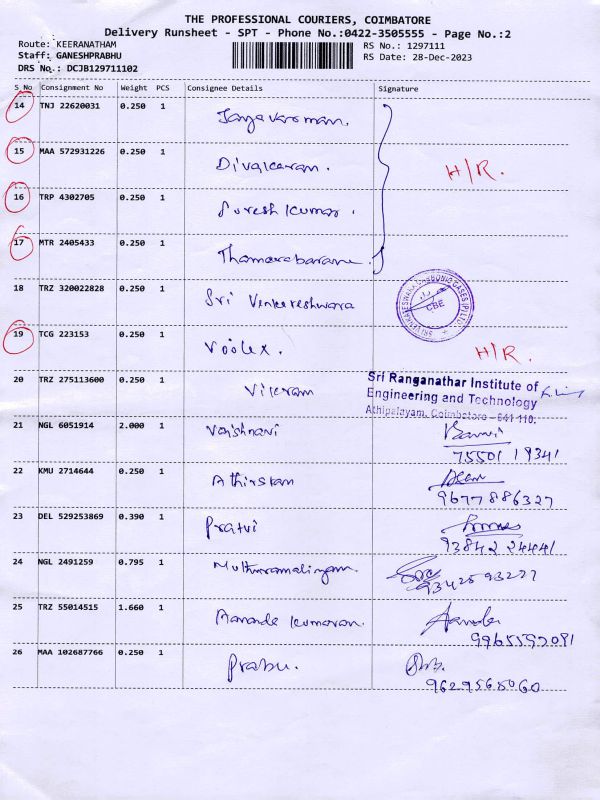 THE PROFESSIONAL COURIERS, COIMBATORE
Delivery Runsheet - SPT - Phone No.:0422-3505555 - Page No.:2
Route: KEERANATHAM RS No.: 1297111
Staff: GANESHPRABHU RS Date: 28-Dec-2023
DRS No.: DCJB129711102
S No Consignment No Weight PCS Consignee Details Signature
14 TNJ 22620031 0.250 1
15 MAA 572931226 0.250 1 Divakaran. H/R.
16 TRP 4302705 0.250 1 Suresh kumar.
17 MTR 2405433 0.250 1 Thamarabarane.
18 TRZ 320022828 0.250 1 Sri Venkateshwara SRI VENKATESWARA CARBONIC GASES (P) LTD. CBE
19 TCG 223153 0.250 1 H/R.
20 TRZ 275113600 0.250 1 Vikram Sri Ranganathar Institute of
Engineering and Technology
Athipalayam, Coimbatore - 641 110.
21 NGL 6051914 2.000 1 Vaishnavi
75501 19341
22 KMU 2714644 0.250 1
9677886327
23 DEL 529253869 0.390 1
93842 24441
24 NGL 2491259 0.795 1 Muthuramalingam.
9342593277
25 TRZ 55014515 1.660 1 Aananda kumaran.
26 MAA 102687766 0.250 1 Prabu.
9629565060